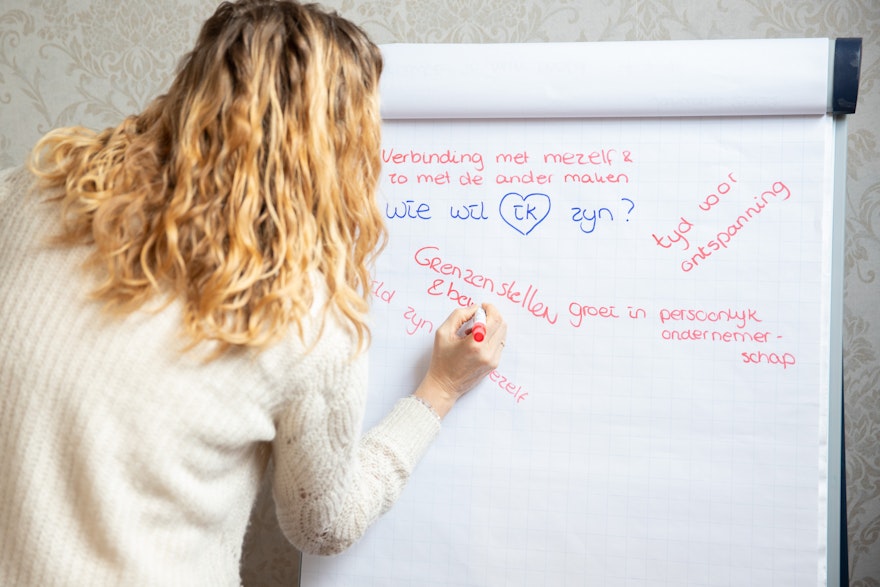 Verbinding met mezelf &
zo met de ander maken
wie wil ik zyn?
tyd voor
ontspanning
Grenzen stellen
&
groei in persoonlyk
ondernemer-
schap
zyn